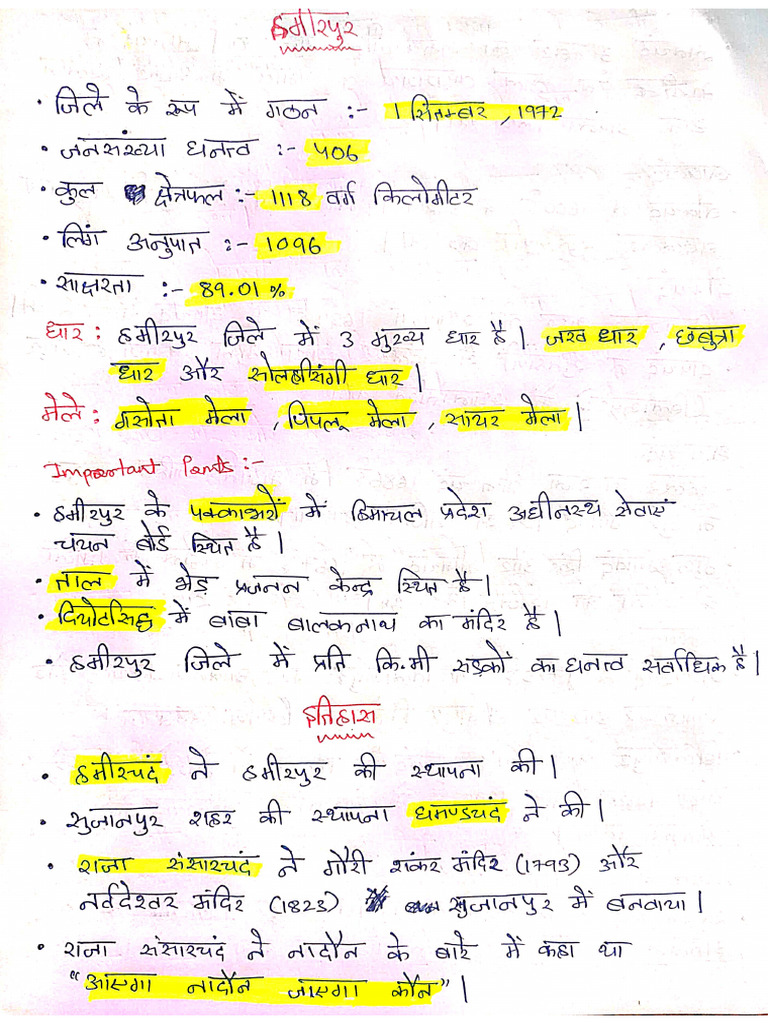 हमीरपुर
• जिले के रूप में गठन :- 1 सितम्बर, 1972
• जनसंख्या घनत्व :- 406
• कुल क्षेत्रफल :- 1118 वर्ग किलोमीटर
• लिंग अनुपात :- 1096
• साक्षरता :- 89.01%
धार : हमीरपुर जिले में 3 मुख्य धार है। जख धार, छबुत्रा
धार और सोलहसिंगी धार।
मेले : गसोता मेला, पिपलू मेला, सायर मेला।
Important Points :-
• हमीरपुर के पक्काभरो में हिमाचल प्रदेश अधीनस्थ सेवाएं
चयन बोर्ड स्थित है।
• ताल में भेड़ प्रजनन केन्द्र स्थित है।
• दियोटसिद्ध में बाबा बालकनाथ का मंदिर है।
• हमीरपुर जिले में प्रति कि.मी सड़कों का घनत्व सर्वाधिक है।
इतिहास
• हमीरचंद ने हमीरपुर की स्थापना की।
• सुजानपुर शहर की स्थापना घमण्डचंद ने की।
• राजा संसारचंद ने गौरी शंकर मंदिर (1793) और
नर्वदेश्वर मंदिर (1823) सुजानपुर में बनवाया।
• राजा संसारचंद ने नादौन के बारे में कहा था
"आएगा नादौन जाएगा कौन"।